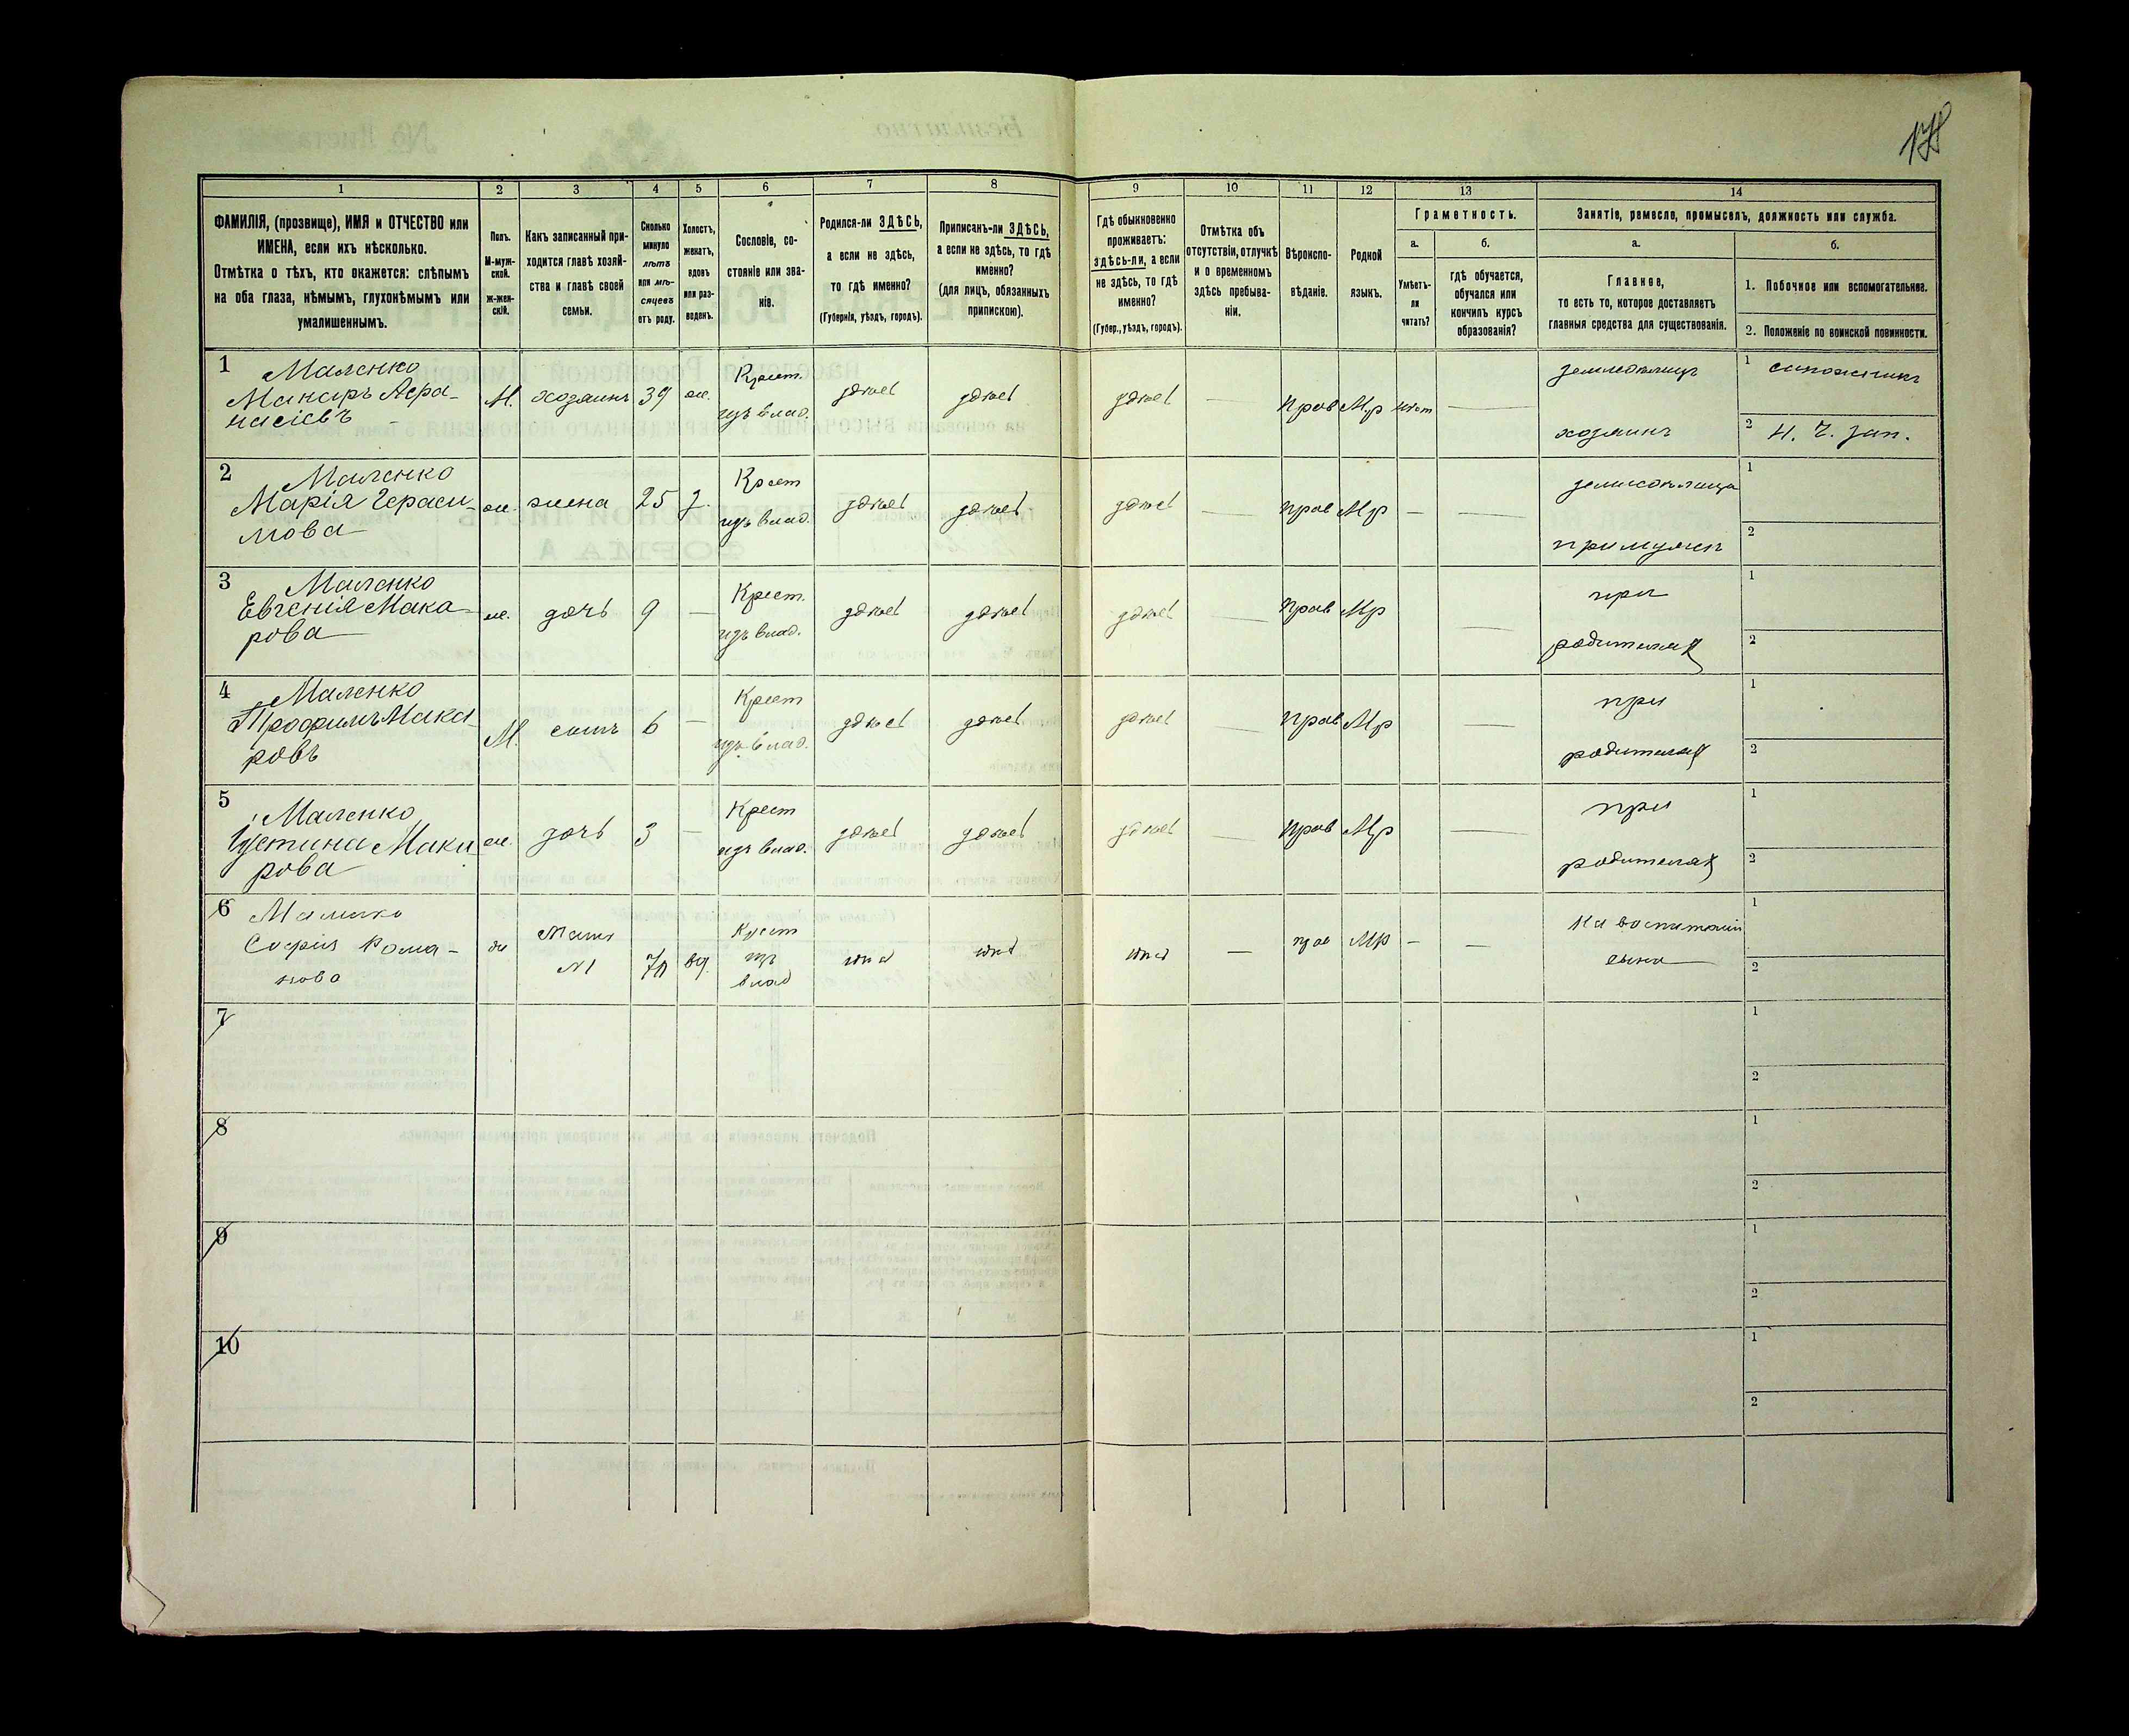 178
1 2 3 4 5 6 7 8 9 10 11 12 13 14
ФАМИЛІЯ, (прозвище), ИМЯ и ОТЧЕСТВО или
ИМЕНА, если ихъ нѣсколько.
Отмѣтка о тѣхъ, кто окажется: слѣпымъ
на оба глаза, нѣмымъ, глухонѣмымъ или
умалишеннымъ.
Полъ.
М-муж-
ской.
ж-жен-
скій.
Какъ записанный при-
ходится главѣ хозяй-
ства и главѣ своей
семьи.
Сколько
минуло
лѣтъ
или мѣ-
сяцевъ
отъ роду.
Холостъ,
женатъ,
вдовъ
или раз-
веденъ.
Сословіе, со-
стояніе или зва-
ніе.
Родился-ли ЗДѢСЬ,
а если не здѣсь,
то гдѣ именно?
(Губернія, уѣздъ, городъ).
Приписанъ-ли ЗДѢСЬ,
а если не здѣсь, то гдѣ
именно?
(для лицъ, обязанныхъ
припискою).
Гдѣ обыкновенно
проживаетъ:
здѣсь-ли, а если
не здѣсь, то гдѣ
именно?
(Губер., уѣздъ, городъ).
Отмѣтка объ
отсутствіи, отлучкѣ
и о временномъ
здѣсь пребыва-
ніи.
Вѣроиспо-
вѣданіе.
Родной
языкъ.
Грамотность.
а.
Умѣетъ-
ли
читать?
б.
гдѣ обучается,
обучался или
кончилъ курсъ
образованія?
Занятіе, ремесло, промыселъ, должность или служба.
а.
Главное,
то есть то, которое доставляетъ
главныя средства для существованія.
б.
1. Побочное или вспомогательное.
2. Положеніе по воинской повинности.
1 Маленко
Макаръ Афа-
насіевъ
М. хозяинъ 39 ж.
Крест.
изъ влад.
здѣсь здѣсь здѣсь — Прав Мр нѣт —
земледѣлецъ
хозяинъ
1 сапожникъ
2 Н. Ч. зап.
2 Маленко
Марія Гераси-
мова
ж. жена 25 з.
Крест
изъ влад.
здѣсь здѣсь здѣсь — прав Мр — —
земледѣлица
при мужѣ
1
2
3 Маленко
Евгенія Мака-
рова
ж. дочь 9 —
Крест.
изъ влад.
здѣсь здѣсь здѣсь — прав Мр —
при
родителях
1
2
4 Маленко
Трофимъ Мака-
ровъ
М. сынъ 6 —
Крест
изъ влад.
здѣсь здѣсь здѣсь — прав Мр —
при
родителях
1
2
5 Маленко
Устина Мака-
рова
ж. дочь 3 —
Крест
изъ влад.
здѣсь здѣсь здѣсь — прав Мр —
при
родителях
1
2
6 Маленко
Софія Рома-
нова
ж
Мать
№1
70 вд.
Крест
изъ
влад
— прав Мр — —
На воспитаніи
сына
1
2
7
1
2
8
1
2
9
1
2
10
1
2